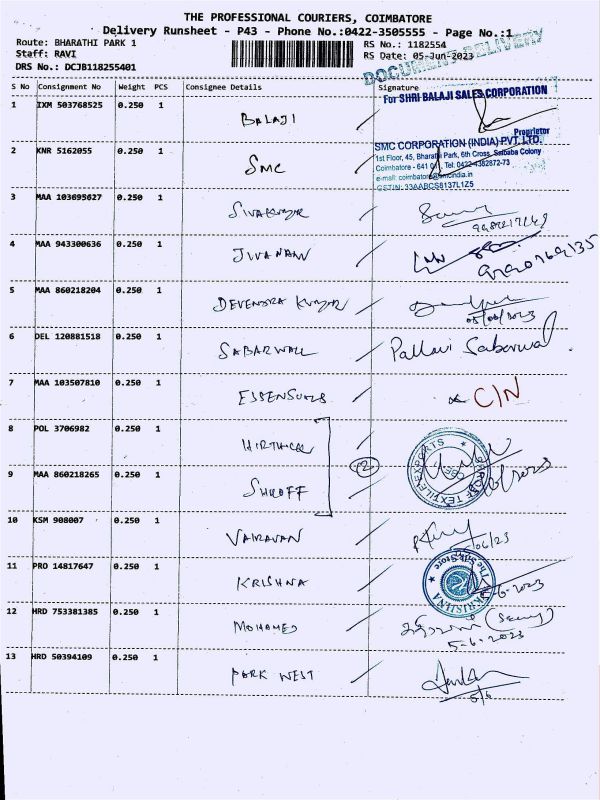 THE PROFESSIONAL COURIERS, COIMBATORE
Delivery Runsheet - P43 - Phone No.:0422-3505555 - Page No.:1
Route: BHARATHI PARK 1
Staff: RAVI
DRS No.: DCJB118255401
RS No.: 1182554
RS Date: 05-Jun-2023
DOCUMENT DELIVERY
S No Consignment No Weight PCS Consignee Details Signature
1 IXM 503768525 0.250 1 BALAJI
For SHRI BALAJI SALES CORPORATION
Proprietor
2 KNR 5162055 0.250 1 SMC
SMC CORPORATION (INDIA) PVT. LTD.
1st Floor, 45, Bharathi Park, 6th Cross, Saibaba Colony
Coimbatore - 641 Tel. 0422-4382872-73
e-mail: coimbatore@smcindia.in
GSTIN: 33AABCS8137L1Z5
3 MAA 103695627 0.250 1 SIVAKUMAR
4 MAA 943300636 0.250 1 JIVANAN
5 MAA 860218204 0.250 1 DEVENDRA KUMAR
05/06/2023
6 DEL 120881518 0.250 1 SABARWALL Pallavi Sabarwal
7 MAA 103507810 0.250 1 C/N
8 POL 3706982 0.250 1
9 MAA 860218265 0.250 1 SHROFF
2
SHROFF TEXTILE EXPORTS
10 KSM 908007 0.250 1 VAIRAVAN
11 PRO 14817647 0.250 1 KRISHNA
The Silk Store
12 HRD 753381385 0.250 1 MOHAMED
5-6-2023
13 HRD 50394109 0.250 1 PARK WEST
5/6